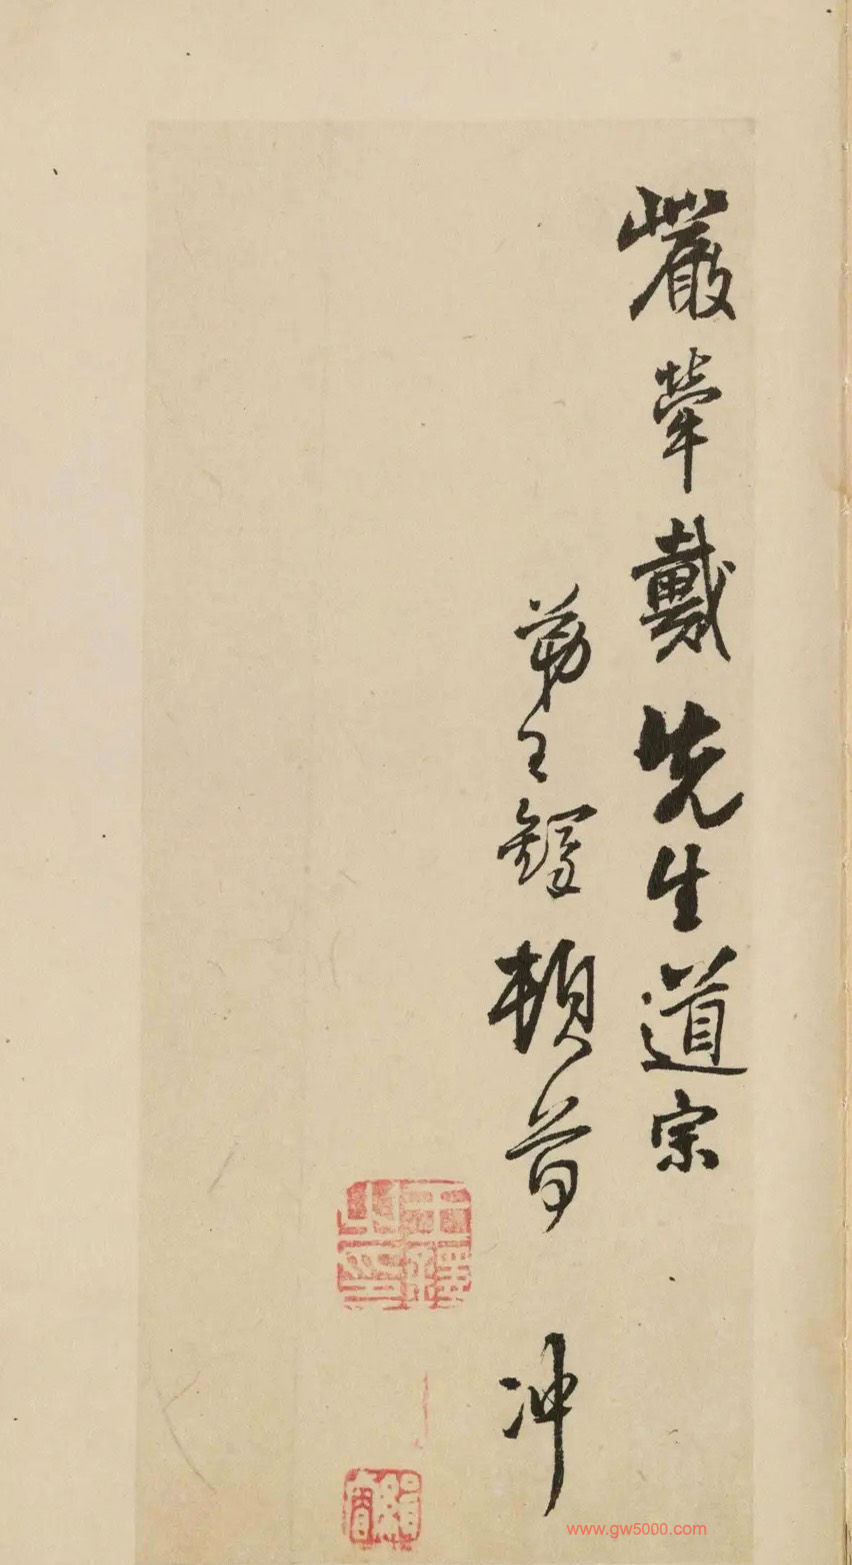 巖犖戴先生道宗
弟王鐸頓首
冲
王鐸之印
www.gw5000.com